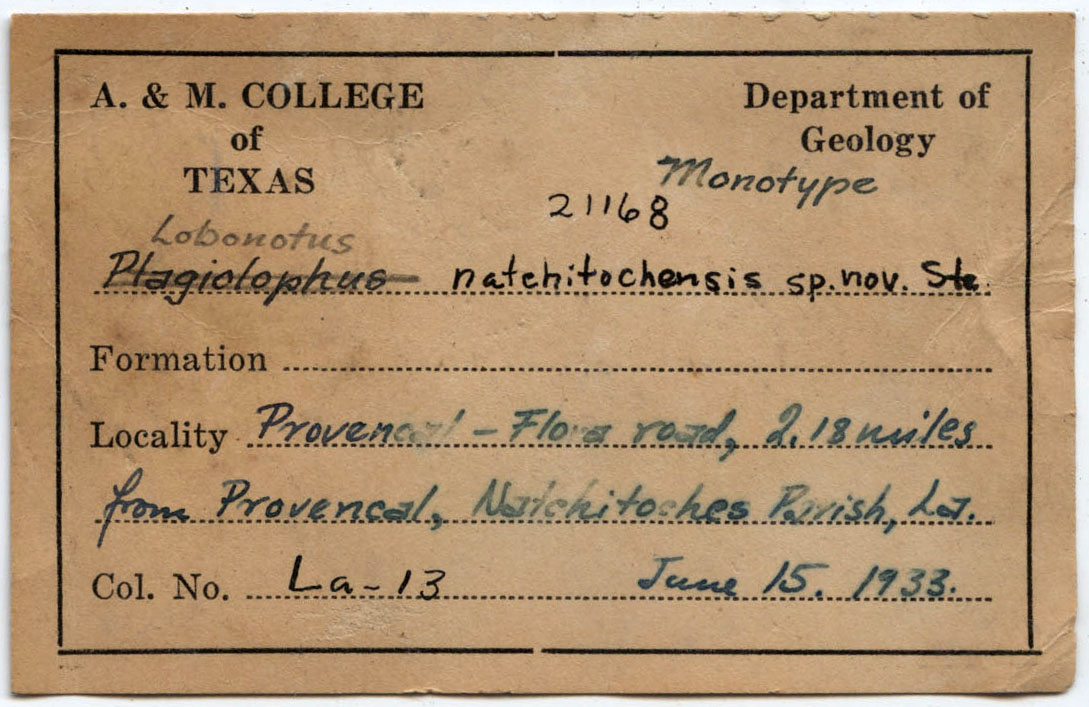 A. & M. COLLEGE
of
TEXAS
Department of
Geology
Monotype
21168
Lobonotus
Plagiolophus natchitochensis sp. nov. Ste.
Formation
Locality Provencal - Flora road, 2.18 miles
from Provencal, Natchitoches Parish, La.
Col. No. La-13 June 15. 1933.